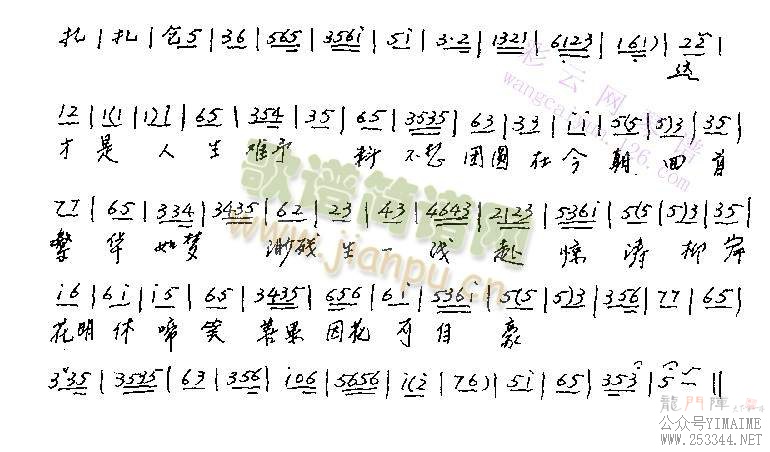 扎 | 扎 | 仓5 | 36 | 565 | 356i | 5i | 3·2 | 1321 | 6123 | 161) | 22 |
这
12 | 1(1 | 1)1 | 65 | 354 | 35 | 65 | 3535 | 63 | 33 | ii | 5(5 | 5)3 | 35 |
才是 人生难予 料 不想团圆在今朝 回首
77 | 65 | 334 | 3435 | 62 | 23 | 43 | 4643 | 2123 | 536i | 5(5 | 5)3 | 35 |
繁华如梦 渺残生一浅 赴 惊涛柳岸
i6 | 6i | i5 | 65 | 3435 | 656 | 6i | 536i | 5(5 | 5)3 | 356 | 77 | 65 |
花明休啼笑善果因花可自 豪
335 | 3535 | 63 | 356 | i06 | 5656 | i(2 | 76) | 5i | 65 | 353 | 5 - ||
彩云网
歌谱简谱网
www.jianpu.cn
龍門陣
公众号YIMAIME
www.253344.NET